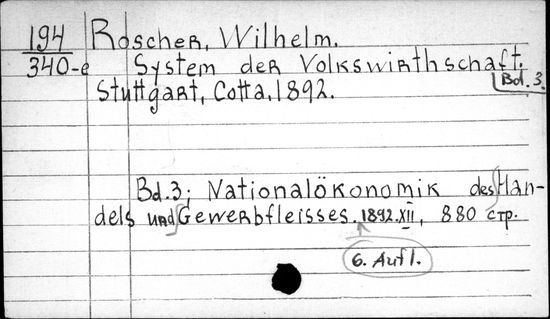 194
340-e
Roscher, Wilhelm.
System der Volkswirthschaft.
Bd. 3.
Stuttgart, Cotta, 1892.
Bd.3; Nationalökonomik des Han-
dels und Gewerbfleisses. 1892. XII, 880 стр.
6. Aufl.